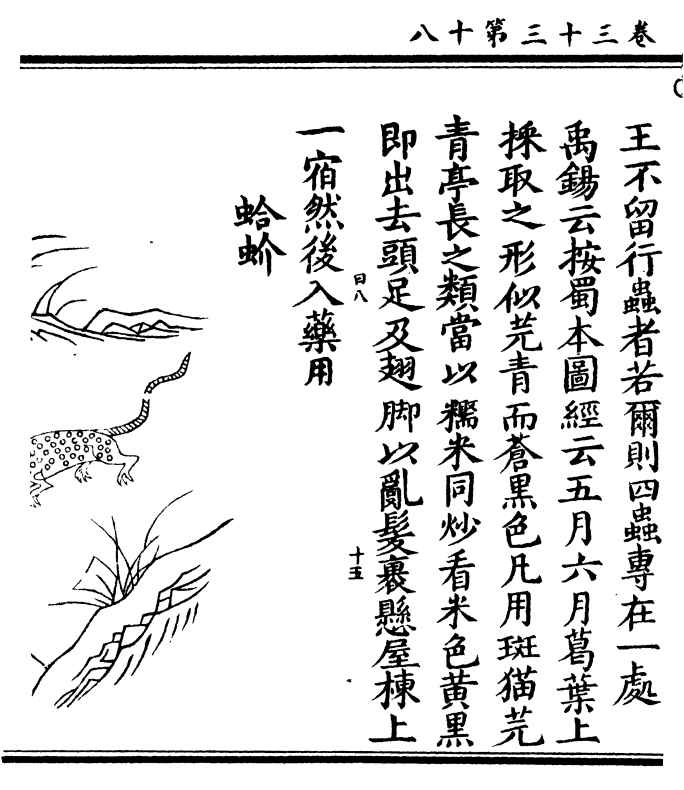 卷三十三第十八
王不留行蟲者若爾則四蟲專在一處
禹錫云按蜀本圖經云五月六月葛葉上
採取之形似芫青而蒼黑色凡用斑猫芫
青亭長之類當以糯米同炒看米色黄黑
即出去頭足及翅脚以亂髮裹懸屋棟上
一宿然後入藥用
曰八
十五
蛤蚧